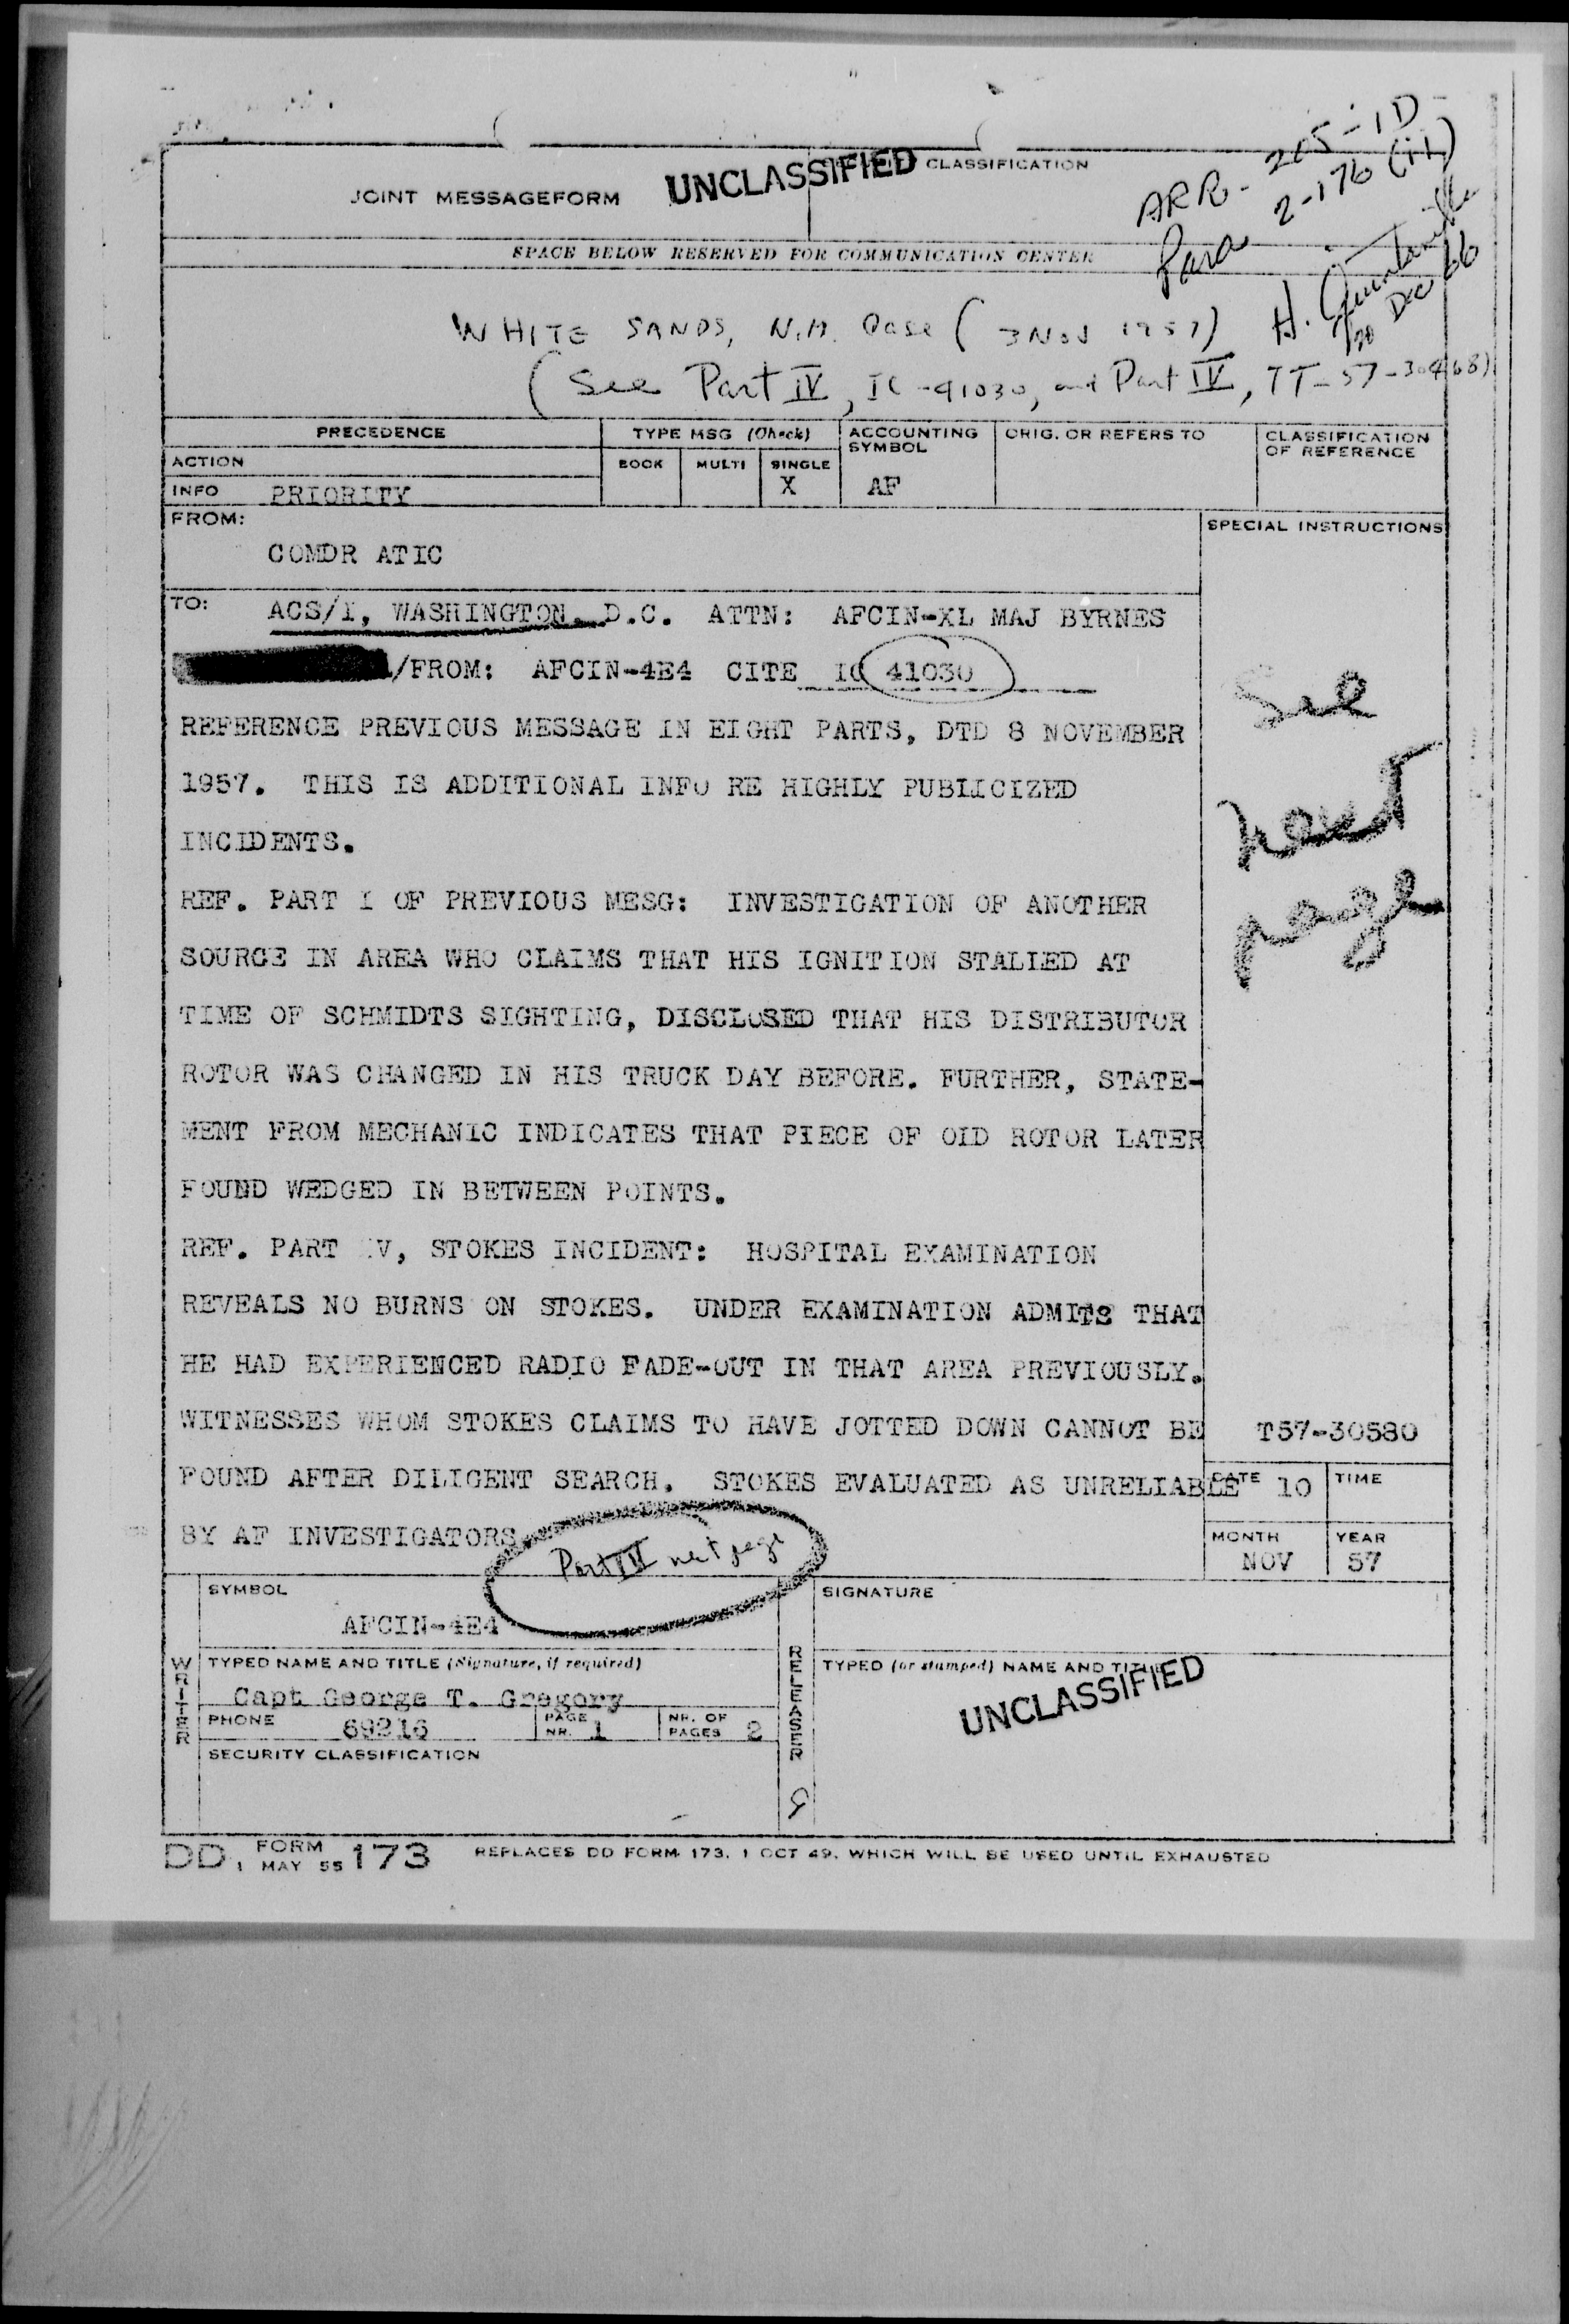 ARR- 205-1D
Para 2-176 (ii)
H. Quintanilla
20 Dec 66
JOINT MESSAGEFORM
UNCLASSIFIED
CLASSIFICATION
SPACE BELOW RESERVED FOR COMMUNICATION CENTER
WHITE SANDS, N.M. Case (3 Nov 1957)
(See Part IV, IC-41030, and Part IV, TT-57-30468)
PRECEDENCE
TYPE MSG (Check)
ACCOUNTING SYMBOL
ORIG. OR REFERS TO
CLASSIFICATION OF REFERENCE
ACTION
BOOK MULTI SINGLE
INFO PRIORITY
X
AF
FROM:
SPECIAL INSTRUCTIONS
COMDR ATIC
TO: ACS/I, WASHINGTON, D.C. ATTN: AFCIN-XL MAJ BYRNES
/FROM: AFCIN-4E4 CITE IC 41030
REFERENCE PREVIOUS MESSAGE IN EIGHT PARTS, DTD 8 NOVEMBER
1957. THIS IS ADDITIONAL INFO RE HIGHLY PUBLICIZED
INCIDENTS.
REF. PART I OF PREVIOUS MESG: INVESTIGATION OF ANOTHER
SOURCE IN AREA WHO CLAIMS THAT HIS IGNITION STALLED AT
TIME OF SCHMIDTS SIGHTING, DISCLOSED THAT HIS DISTRIBUTOR
ROTOR WAS CHANGED IN HIS TRUCK DAY BEFORE. FURTHER, STATE-
MENT FROM MECHANIC INDICATES THAT PIECE OF OLD ROTOR LATER
FOUND WEDGED IN BETWEEN POINTS.
REF. PART IV, STOKES INCIDENT: HOSPITAL EXAMINATION
REVEALS NO BURNS ON STOKES. UNDER EXAMINATION ADMITS THAT
HE HAD EXPERIENCED RADIO FADE-OUT IN THAT AREA PREVIOUSLY.
WITNESSES WHOM STOKES CLAIMS TO HAVE JOTTED DOWN CANNOT BE
FOUND AFTER DILIGENT SEARCH. STOKES EVALUATED AS UNRELIABLE
BY AF INVESTIGATORS
See
next
page
T57-30580
DATE 10
TIME
MONTH
NOV
YEAR
57
Part IV next page
SYMBOL
AFCIN-4E4
SIGNATURE
WRITER
TYPED NAME AND TITLE (Signature, if required)
Capt George T. Gregory
PHONE 69216
PAGE NR. 1
NR. OF PAGES 2
SECURITY CLASSIFICATION
RELEASER
TYPED (or stamped) NAME AND TITLE
UNCLASSIFIED
DD FORM 1 MAY 55 173 REPLACES DD FORM 173, 1 OCT 49, WHICH WILL BE USED UNTIL EXHAUSTED